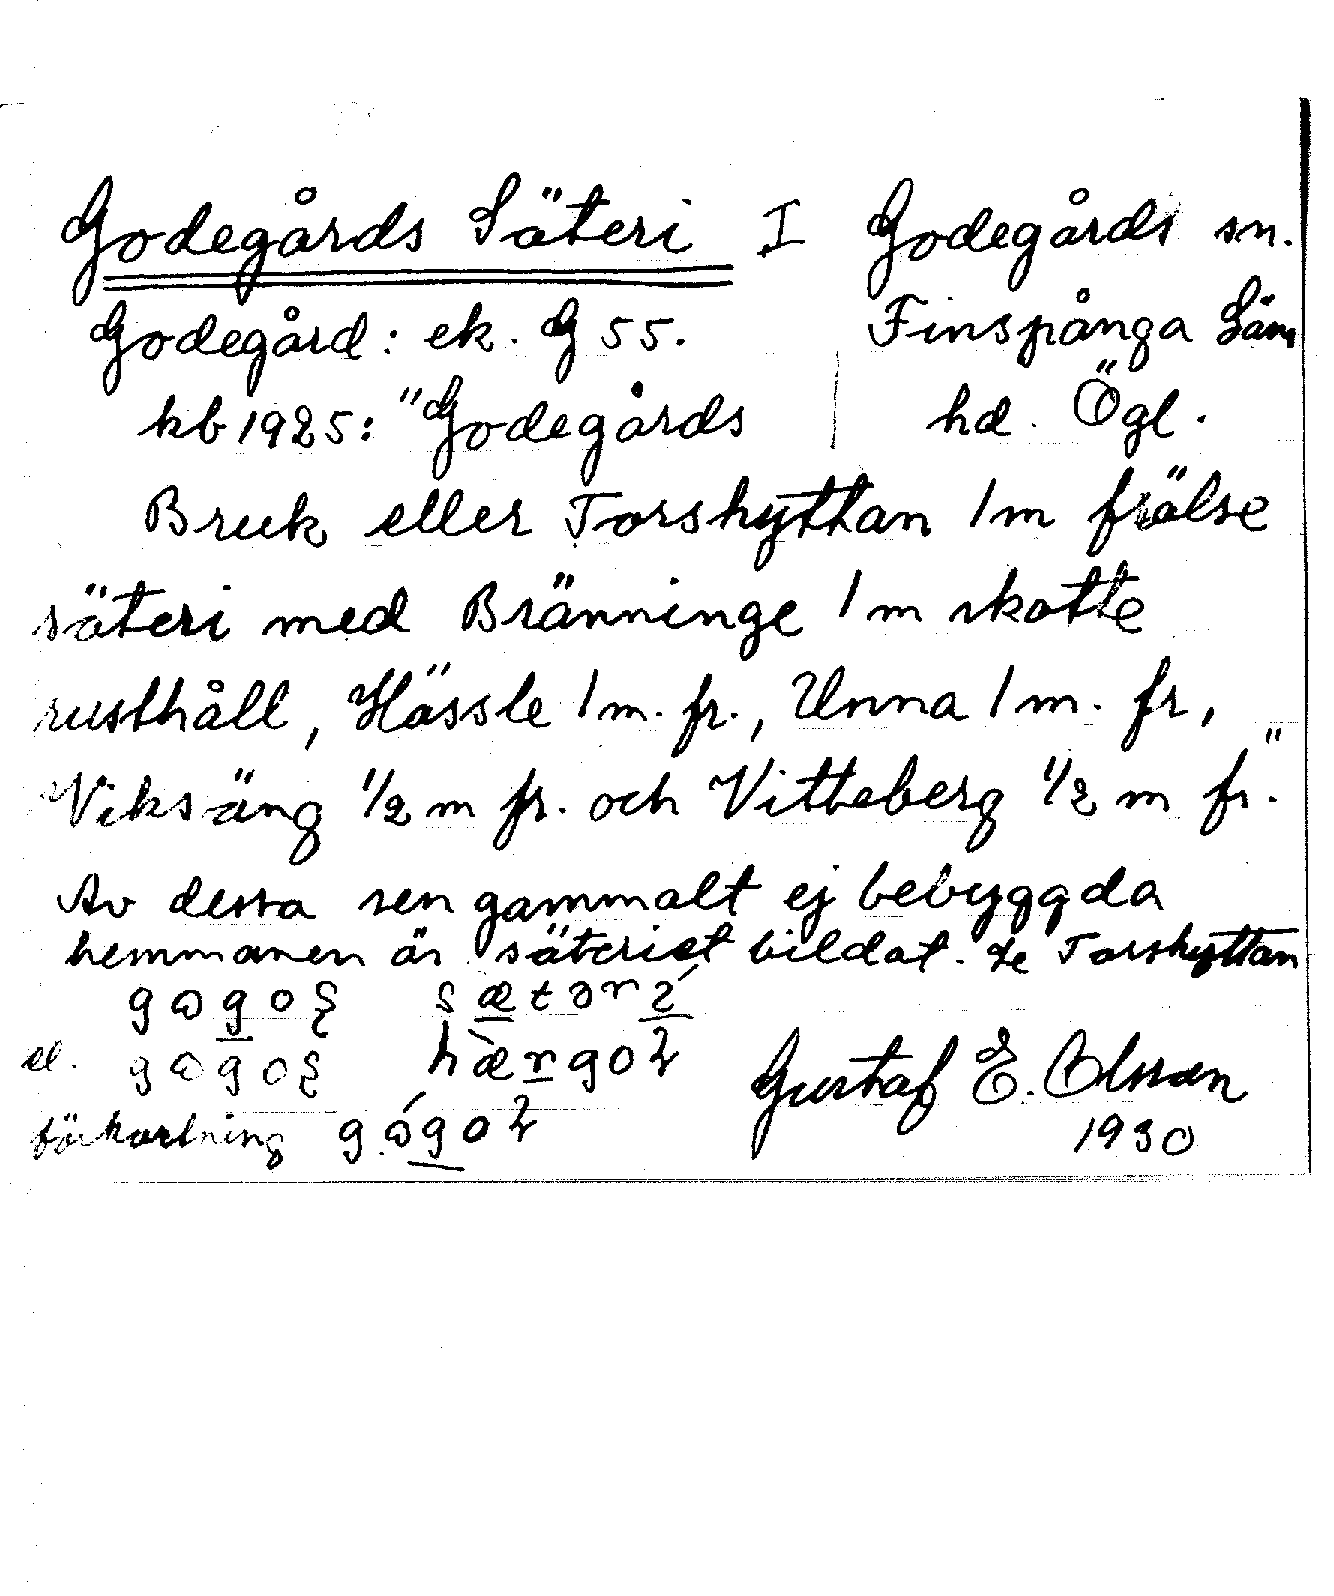 Godegårds Säteri I Godegårds sn.
Godegård: ek. G 55. Finspånga Län
kb 1925: "Godegårds hd. Ögl.
Bruk eller Torshyttan 1 m frälse
säteri med Bränninge 1 m skatte
rusthåll, Hässle 1 m. fr., Unna 1 m. fr,
Viksäng 1/2 m fr. och Vitteberg 1/2 m fr."
Av dessa sen gammalt ej bebyggda
hemmanen är säteriet bildat. Se Torshyttan
el.
förkortning
Gustaf E. Olsson
1930